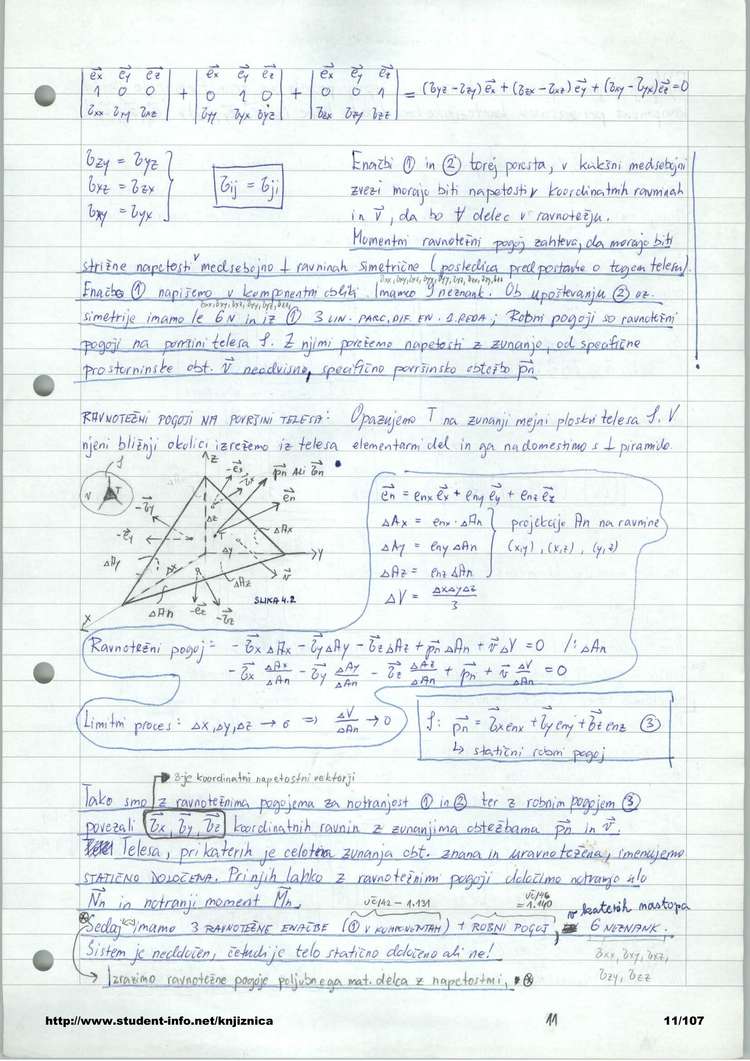 | e⃗x e⃗y e⃗z | + | e⃗x e⃗y e⃗z | + | e⃗x e⃗y e⃗z | = (σyz - σzy) e⃗x + (σzx - σxz) e⃗y + (σxy - σyx) e⃗z = 0
| 1 0 0 | | 0 1 0 | | 0 0 1 |
σzy = σyz
σxz = σzx
σxy = σyx
σij = σji
Enačbi ① in ② torej povesta, v kakšni medsebojni
zvezi morajo biti napetosti v koordinatnih ravninah
in v⃗, da bo ∀ delec v ravnotežju.
Momentni ravnotežni pogoj zahteva, da morajo biti
strižne napetosti v medsebojno ⊥ ravninah simetrične (posledica predpostavke o togem telesu).
Enačbo ① napišemo v komponentni obliki. Imamo 9 neznank. Ob upoštevanju ② oz.
simetrije imamo le 6 N in iz ① 3 LIN. PARC. DIF. EN. 1. REDA; Robni pogoji so ravnotežni
pogoji na površini telesa S. Z njimi povežemo napetosti z zunanjo, od specifične
prostorninske obt. v⃗ neodvisno, specifično površinsko obtežbo p⃗n.
RAVNOTEŽNI POGOJI NA POVRŠINI TELESA: Opazujemo T na zunanji mejni ploskvi telesa S. V
njeni bližnji okolici izrežemo iz telesa elementarni del in ga nadomestimo s ⊥ piramido.
S
N
T
z
-e⃗x
-σ⃗x
p⃗n ALI σ⃗n
e⃗n
-σ⃗y
-e⃗y
Δz
ΔAx
ΔAy
Δx
Δy
y
ΔAz
v⃗
x
ΔAn
-e⃗z
-σ⃗z
SLIKA 4.2
e⃗n = enx e⃗x + eny e⃗y + enz e⃗z
ΔAx = enx · ΔAn
ΔAy = eny ΔAn
ΔAz = enz ΔAn
projekcije An na ravnine
(x,y), (x,z), (y,z)
ΔV = ΔxΔyΔz / 3
Ravnotežni pogoj: -σ⃗x ΔAx - σ⃗y ΔAy - σ⃗z ΔAz + p⃗n ΔAn + v⃗ ΔV = 0 /: ΔAn
-σ⃗x ΔAx/ΔAn - σ⃗y ΔAy/ΔAn - σ⃗z ΔAz/ΔAn + p⃗n + v⃗ ΔV/ΔAn = 0
Limitni proces: Δx, Δy, Δz → 0 ⇒ ΔV/ΔAn → 0
S: p⃗n = σ⃗x enx + σ⃗y eny + σ⃗z enz ③
↳ statični robni pogoj
3-je koordinatni napetostni vektorji
Tako smo z ravnotežnima pogojema za notranjost ① in ② ter z robnim pogojem ③
povezali σ⃗x, σ⃗y, σ⃗z koordinatnih ravnin z zunanjima obtežbama p⃗n in v⃗.
Telesa, pri katerih je celotna zunanja obt. znana in uravnotežena, imenujemo
STATIČNO DOLOČENA. Pri njih lahko z ravnotežnimi pogoji določimo notranjo silo
N⃗n in notranji moment M⃗n.
UČ/42 - 1.131
UČ/46 = 1.140
Sedaj imamo 3 RAVNOTEŽNE ENAČBE (① V KOMPONENTAH) + ROBNI POGOJ, v katerih nastopa
6 NEZNANK.
Sistem je nedoločen, četudi je telo statično določeno ali ne!
σxx, σxy, σxz,
σzy, σzz
Izrazimo ravnotežne pogoje poljubnega mat. delca z napetostmi.
http://www.student-info.net/knjiznica
11
11/107